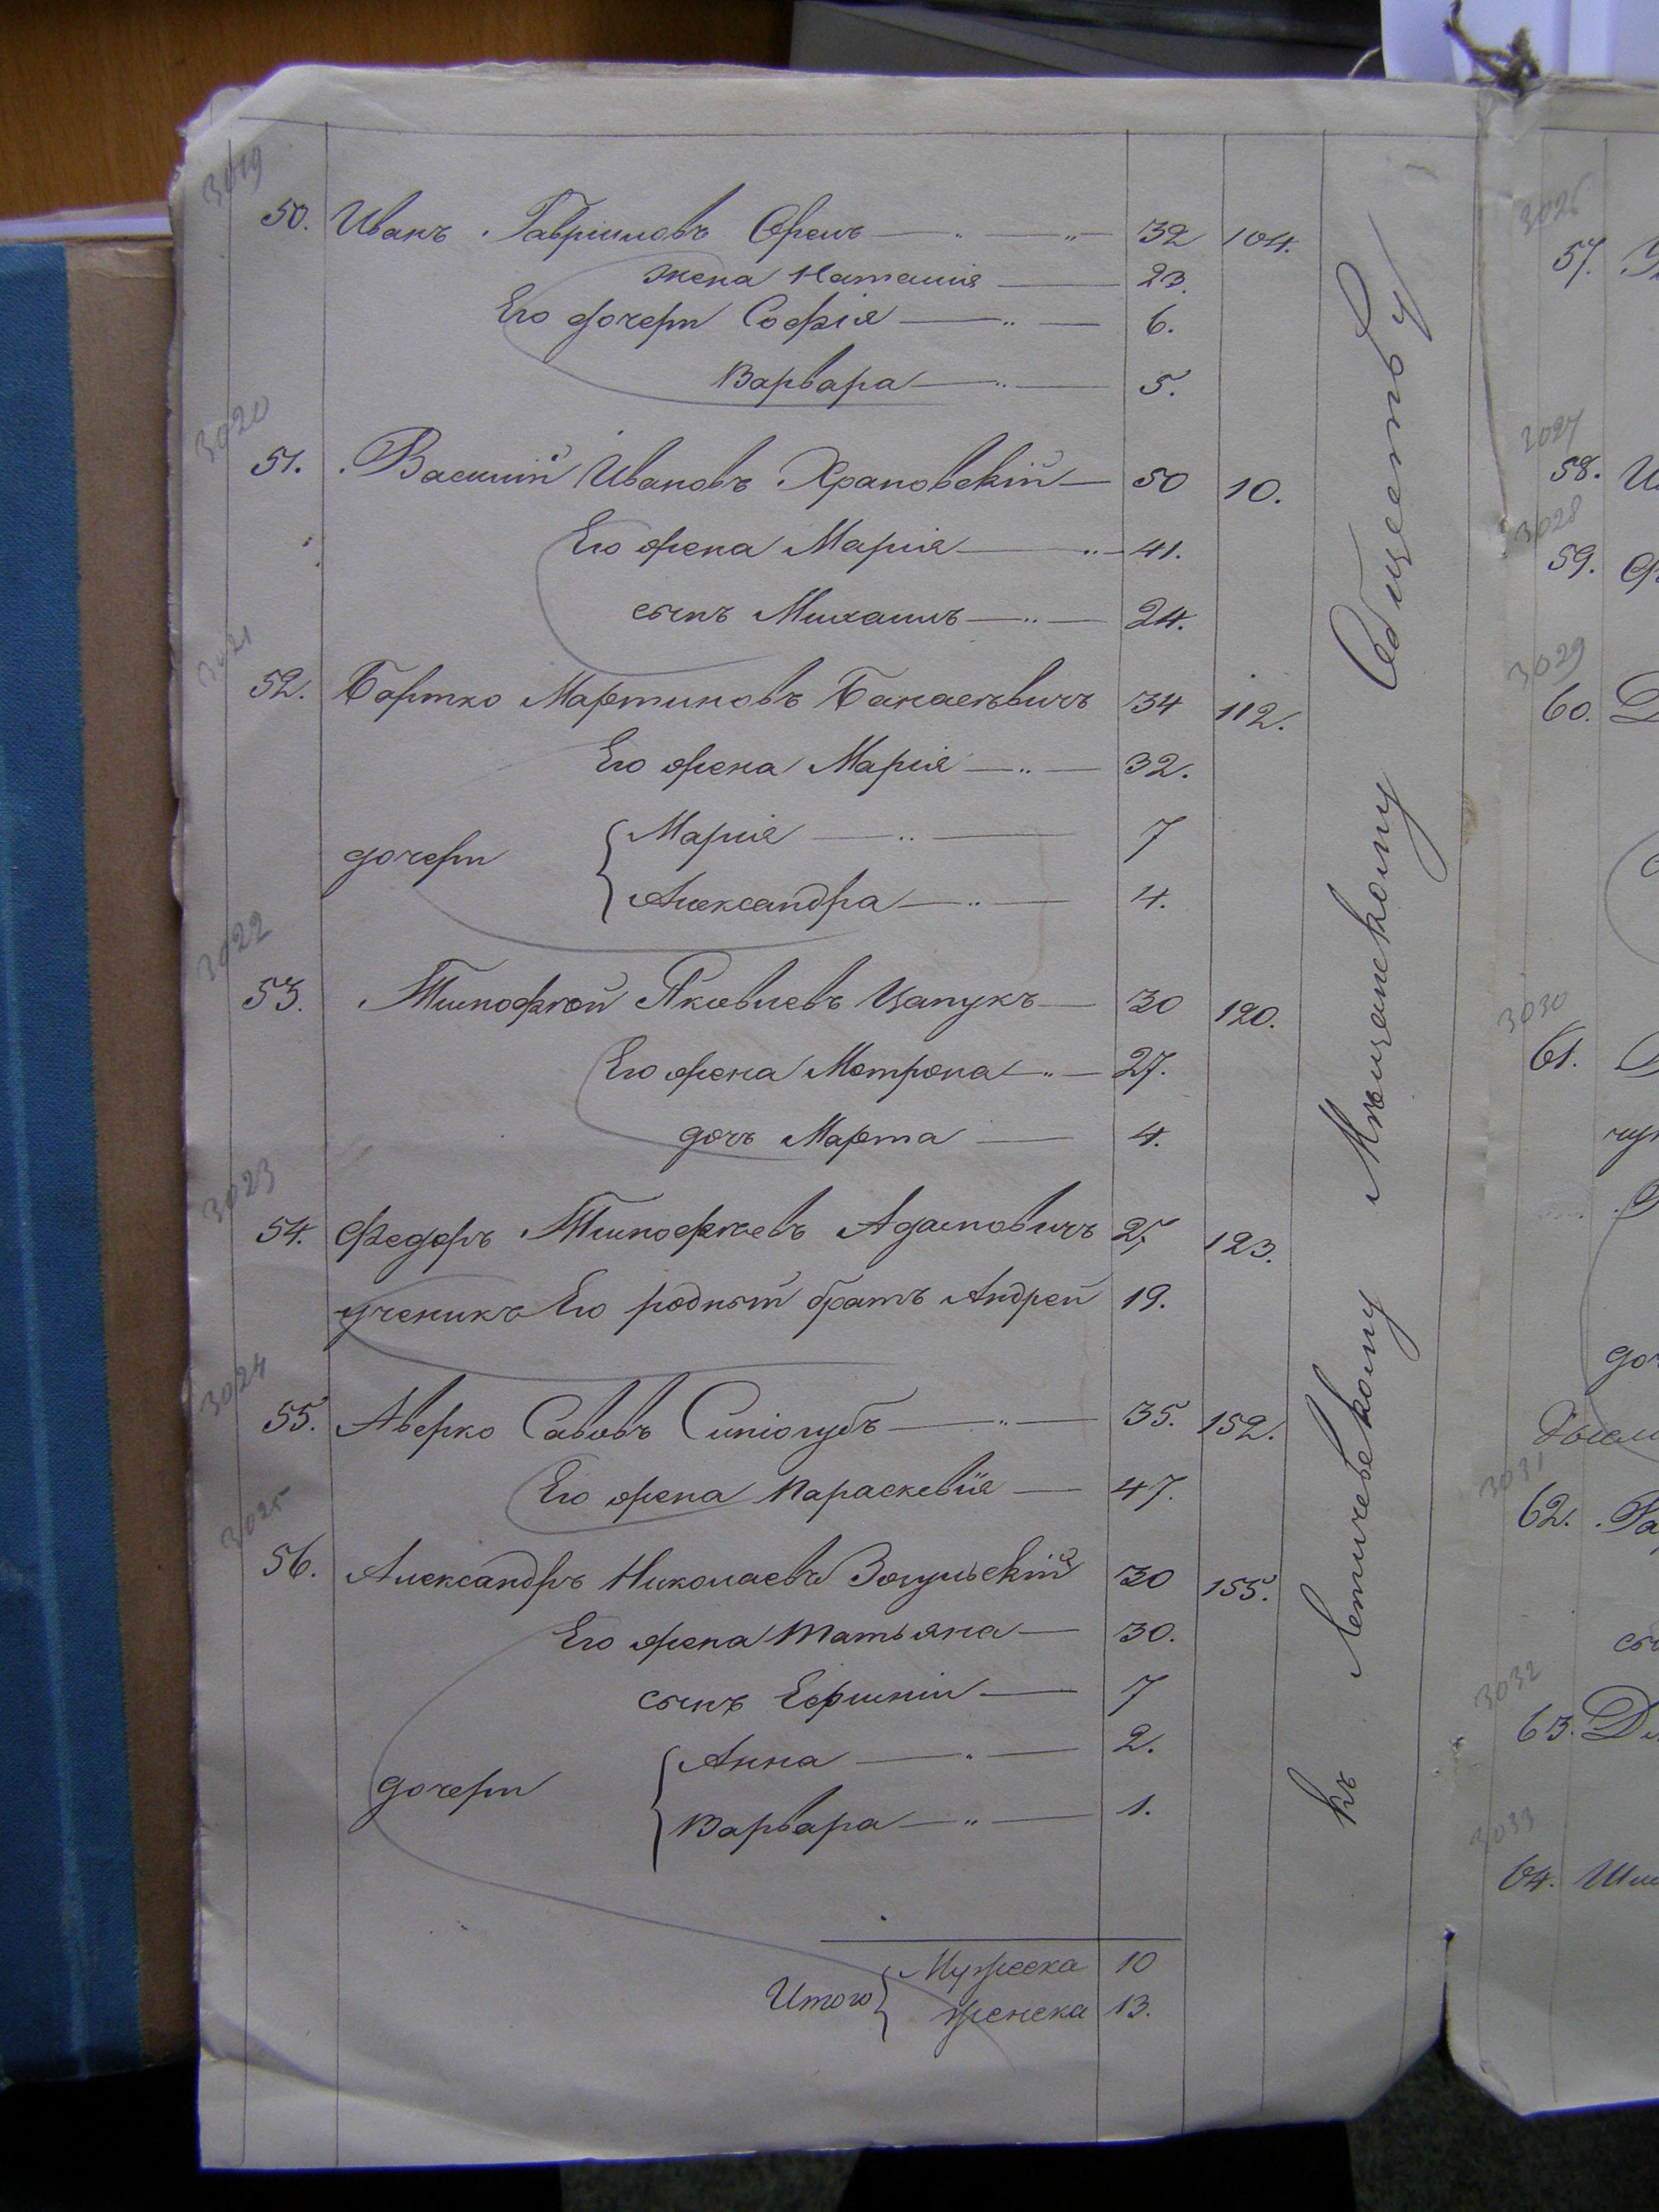 3019
50. Иванъ Гавріиловъ Орелъ 32 104.
жена Наталия 23.
Его дочери Софія 6.
Варвара 5.
3020
51. Василий Ивановъ Храновскій 50 10.
Его жена Мария 41.
сынъ Михаилъ 24.
3021
52. Бартко Мартиновъ 34 112.
Его жена Марія 32.
дочери Мария 7
Александра 4.
3022
53. Тимофѣй Яковлевъ Цапукъ 30 120.
Его жена Мотрона 27.
дочь Марта 4.
3023
54. Федоръ Тимофѣевъ Адамовичъ 27 123.
ученикъ Его родный братъ Андрей 19.
3024
55. Аверко Савовъ 35. 152.
Его жена Параскевія 47.
3025
56. Александръ Николаевъ Зогульскій 30 155.
Его жена Татьяна 30.
сынъ Ефимій 7
дочери Анна 2.
Варвара 1.
Итого Мужеска 10
женска 13.
къ Летичевскому Мѣщанскому Обществу
3026
57.
3027
58.
3028
59.
3029
60.
3030
61.
3031
62.
3032
63.
3033
64.